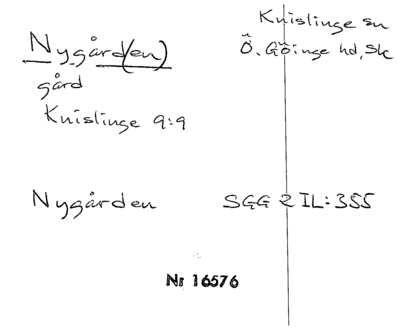 Nygård(en)
Knislinge sn
Ö. Göinge hd, Sk
gård
Knislinge 9:9
Nygården SGG 2 IL: 355
Nr 16576